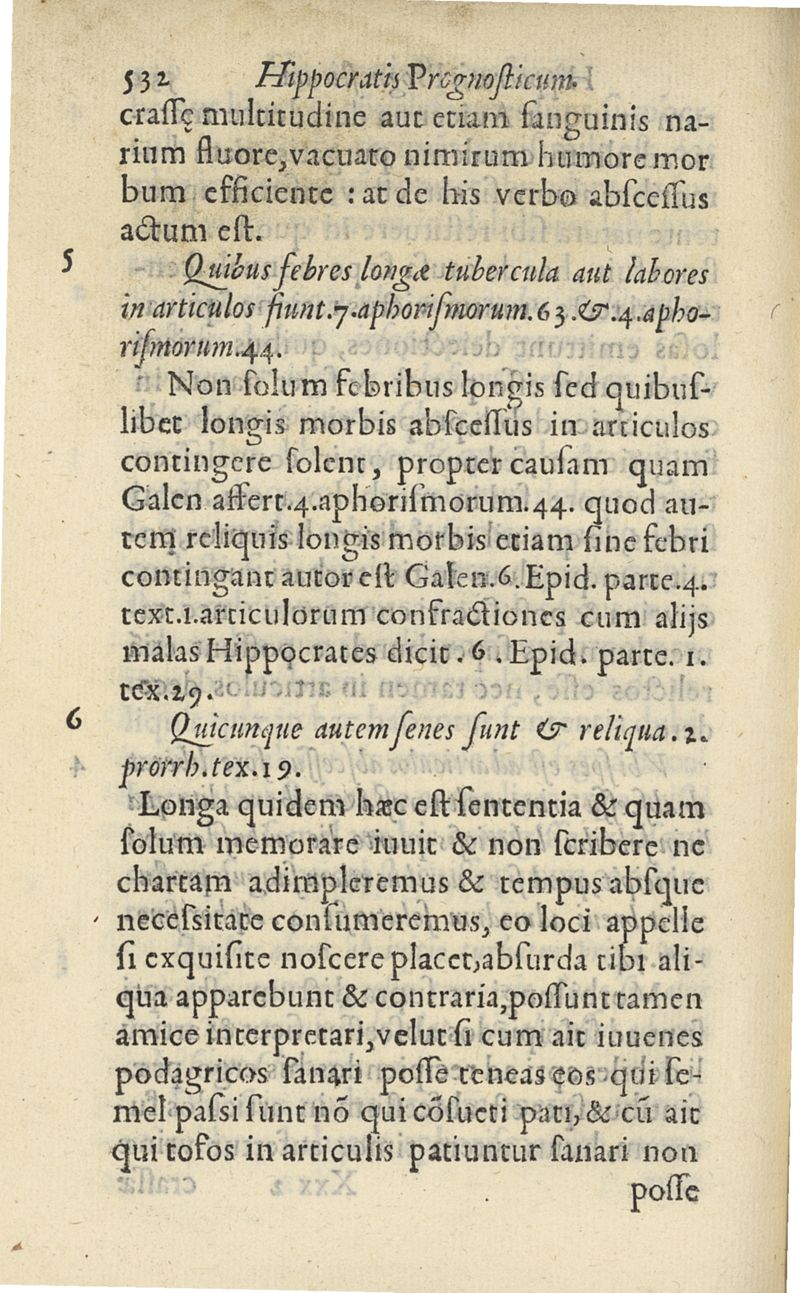 532 Hippocratis Prognosticum.
crassę multitudine aut etiam sanguinis na-
rium fluore, vacuato nimirum humore mor
bum efficiente : at de his verbo abscessus
actum est.
5
Quibus febres longæ tubercula aut labores
in articulos fiunt.7.aphorismorum.63.&.4.apho-
rismorum.44.
Non solum febribus longis sed quibus-
libet longis morbis abscessus in articulos
contingere solent, propter causam quam
Galen affert.4.aphorismorum.44. quod au-
tem reliquis longis morbis etiam sine febri
contingant autor est Galen.6.Epid. parte.4.
text.1.articulorum confractiones cum alijs
malas Hippocrates dicit . 6 . Epid. parte. 1.
tex.29.
6
Quicunque autem senes sunt & reliqua . 2.
prorrh.tex.19.
Longa quidem hæc est sententia & quam
solum memorare iuuit & non scribere ne
chartam adimpleremus & tempus absque
necessitate consumeremus, eo loci appelle
si exquisite noscere placet, absurda tibi ali-
qua apparebunt & contraria, possunt tamen
amice interpretari, velut si cum ait iuuenes
podagricos sanari posse teneas eos qui se-
mel passi sunt nõ qui cõsueti pati, & cũ ait
qui tofos in articulis patiuntur sanari non
posse